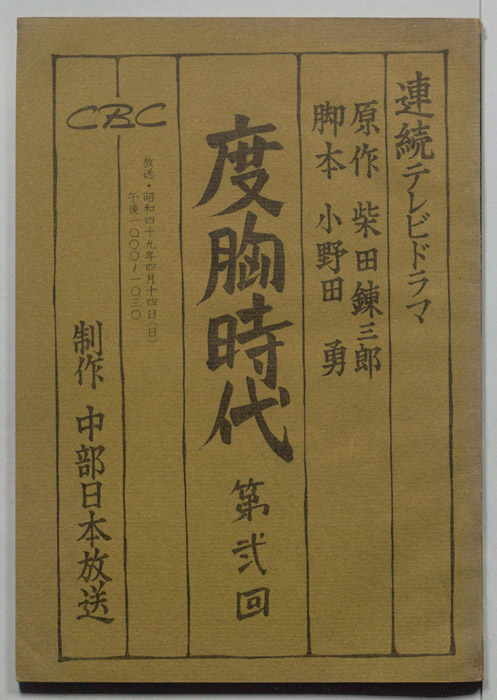 連続テレビドラマ
原作 柴田錬三郎
脚本 小野田 勇
度胸時代 第弐回
放送・昭和四十九年四月十四日(日)
午後一〇〇〇~一〇三〇
CBC
制作 中部日本放送